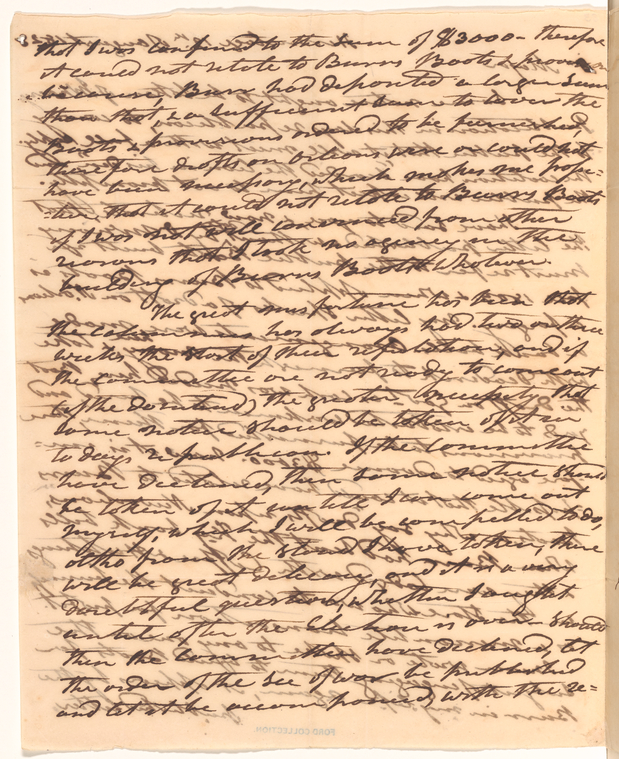 that I was confined to the sum of $3000 - therefore
it could not relate to Burrs Boats & provisn
because, Burr had deposited a larger sum
than that, & a sufficient sum to cover the
Boats & provisions ordered to be furnished,
therefore drafts on orleans were or could not
have been necessary, which makes me posi=
tive, that it could not relate to Burrs Boats
if I was not well convinced from other
reasons that I took no agency in the
building of Burrs Boats whatever.
The great misfortune has been that
the has always had two or three
weeks the start of their refutation, and if
the committee are not ready to come out
(off the) the greater necessity that
some notice should be taken of it in
to days republican. If the Committee
have declined, then some notice should
be taken of it until I can come out
myself, which I will be compelled to do,
altho from the stand I have taken, there
will be great delicacy, and it is a very
doubtful question, whether I ought
until after the Election is over - should
then the committee have declined, let
the order of the Sec of war be published
and let it be accompanied, with the re=
FORD COLLECTION